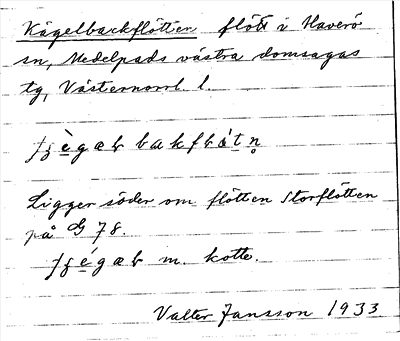 Kägelbackflötten flöte i Haverö
sn, Medelpads västra domsagas
tg, Västernorrl l.
Ligger söder om flötten Storflötten
på G 78.
m. kotte.
Valter Jansson 1933